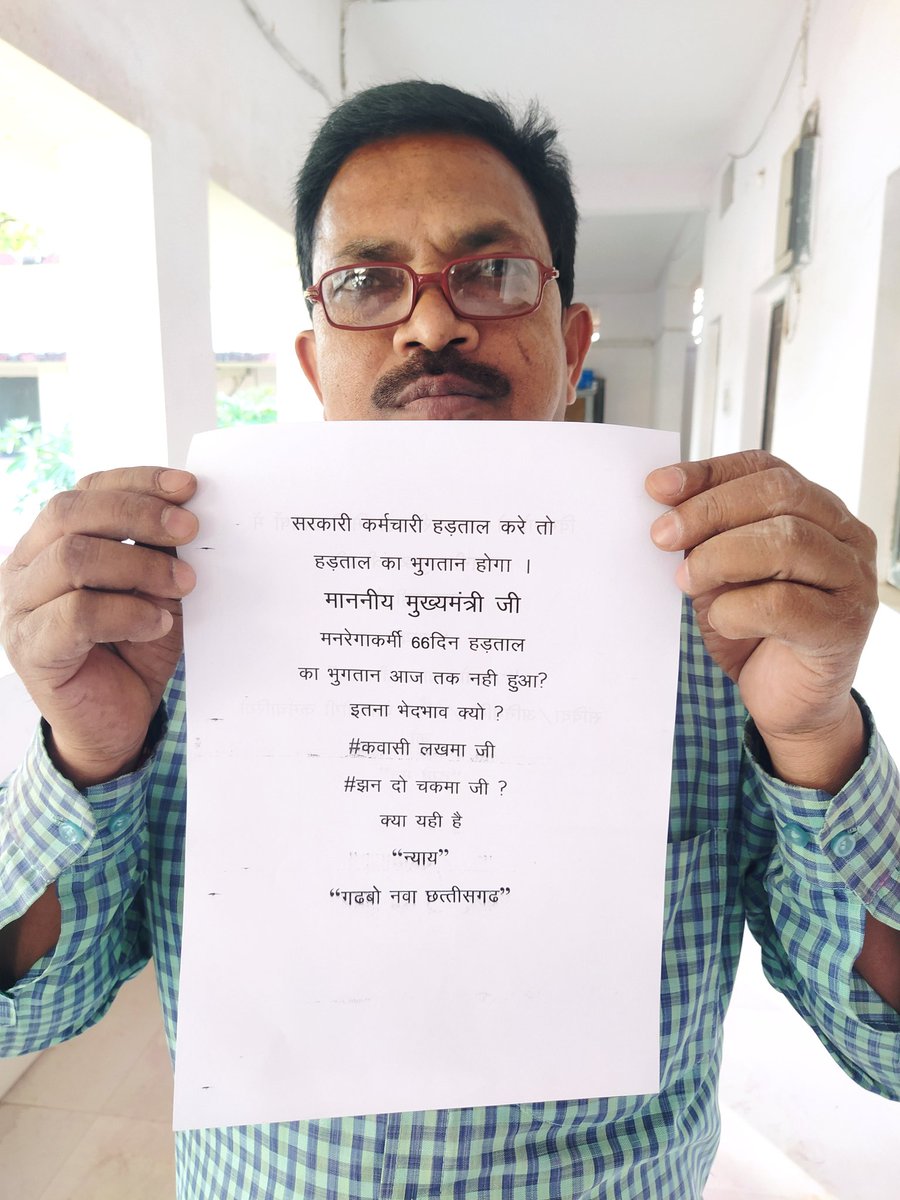 सरकारी कर्मचारी हड़ताल करे तो
हड़ताल का भुगतान होगा ।
माननीय मुख्यमंत्री जी
मनरेगाकर्मी 66दिन हड़ताल
का भुगतान आज तक नही हुआ?
इतना भेदभाव क्यो ?
#कवासी लखमा जी
#झन दो चकमा जी ?
क्या यही है
“न्याय”
“गढबो नवा छत्तीसगढ”